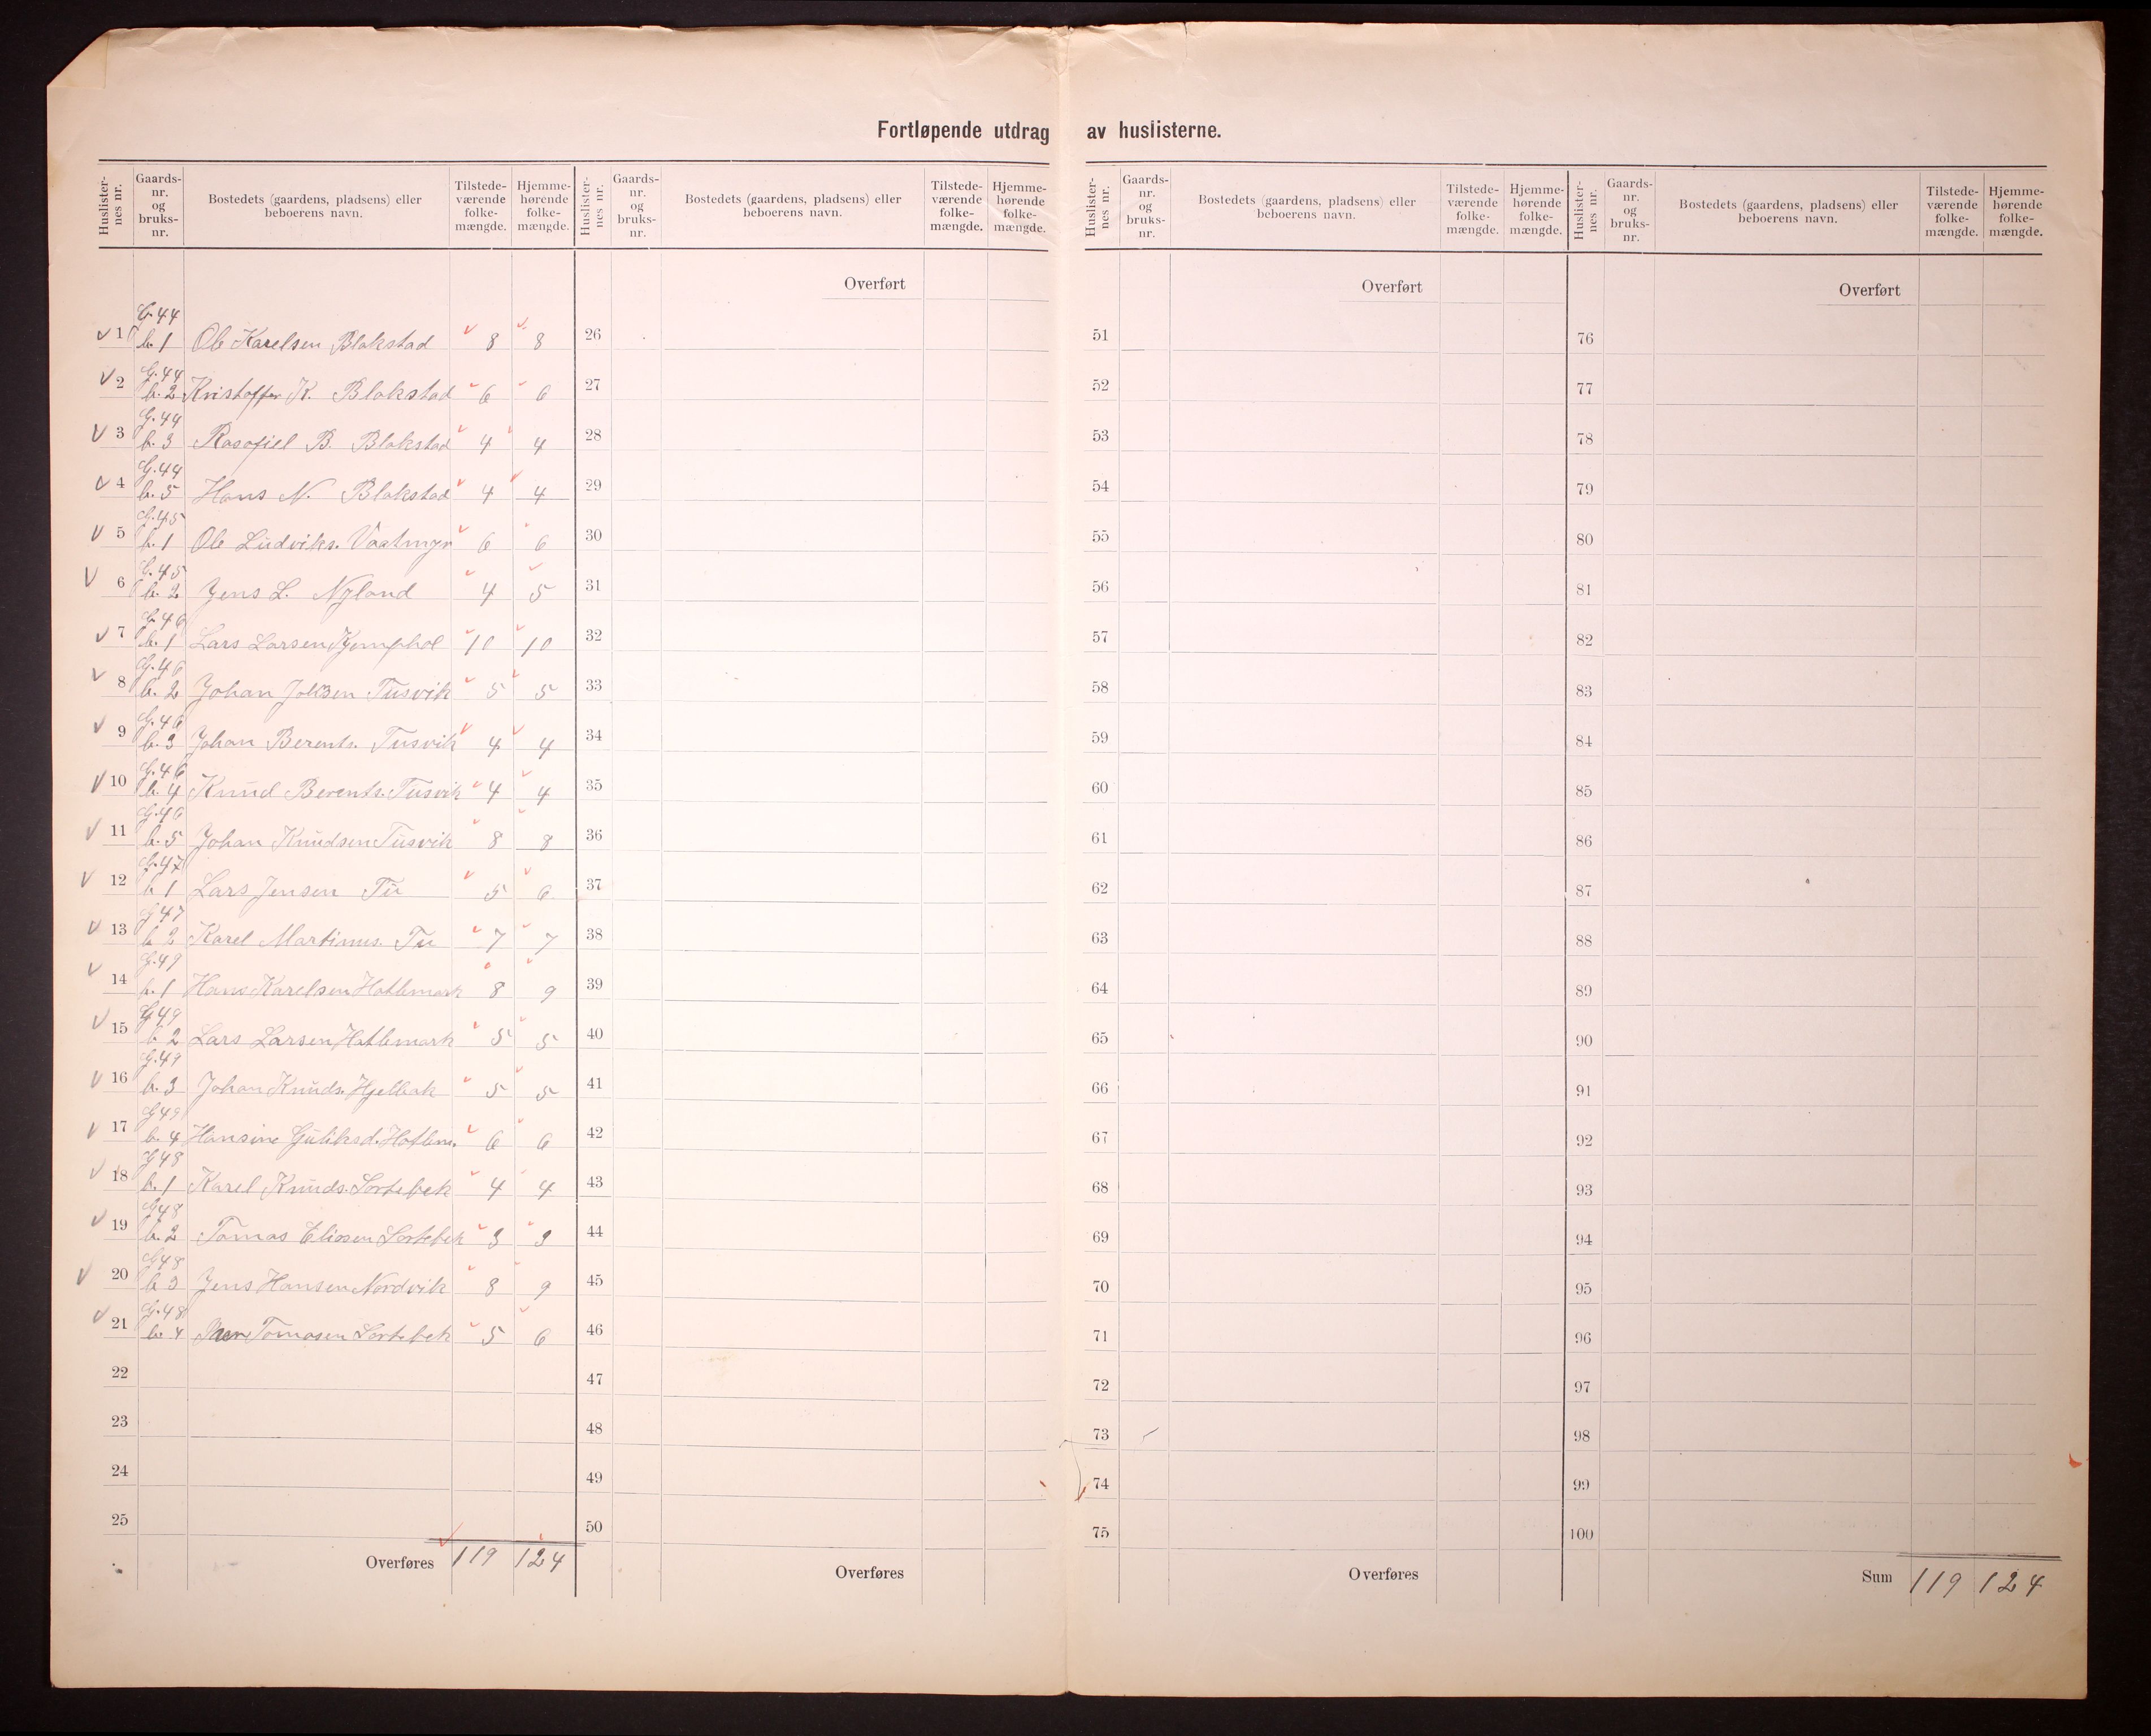 Fortløpende utdrag av huslisterne.
Huslister-nes nr. Gaards-nr. og bruks-nr. Bostedets (gaardens, pladsens) eller beboerens navn. Tilstede-værende folke-mængde. Hjemme-hørende folke-mængde. Huslister-nes nr. Gaards-nr. og bruks-nr. Bostedets (gaardens, pladsens) eller beboerens navn. Tilstede-værende folke-mængde. Hjemme-hørende folke-mængde. Huslister-nes nr. Gaards-nr. og bruks-nr. Bostedets (gaardens, pladsens) eller beboerens navn. Tilstede-værende folke-mængde. Hjemme-hørende folke-mængde. Huslister-nes nr. Gaards-nr. og bruks-nr. Bostedets (gaardens, pladsens) eller beboerens navn. Tilstede-værende folke-mængde. Hjemme-hørende folke-mængde.
Overført Overført Overført
1 G. 44 b. 1 Ole Karelsen Blakstad 8 8 26 51 76
2 G. 44 b. 2 Kristoffer K. Blakstad 6 6 27 52 77
3 G. 44 b. 3 B. Blakstad 4 4 28 53 78
4 G. 44 b. 5 Hans N. Blakstad 4 4 29 54 79
5 G. 45 b. 1 Ole Ludviks. Vaatmyr 6 6 30 55 80
6 G. 45 b. 2 Jens L. Nyland 4 5 31 56 81
7 G. 46 b. 1 Lars Larsen 10 10 32 57 82
8 G. 46 b. 2 Johan Tusvik 5 5 33 58 83
9 G. 46 b. 3 Johan Berents. Tusvik 4 4 34 59 84
10 G. 46 b. 4 Knud Berents. Tusvik 4 4 35 60 85
11 G. 46 b. 5 Johan Knudsen Tusvik 8 8 36 61 86
12 G. 47 b. 1 Lars Jensen Tu 5 6 37 62 87
13 G. 47 b. 2 Karel Martinus. Tu 7 7 38 63 88
14 G. 49 b. 1 Hans Karelsen Hatlemark 8 9 39 64 89
15 G. 49 b. 2 Lars Larsen Hatlemark 5 5 40 65 90
16 G. 49 b. 3 Johan Knuds. Hjelbak 5 5 41 66 91
17 G. 49 b. 4 Hansine Guliksd. Hatlem. 6 6 42 67 92
18 G. 48 b. 1 Karel Knuds. Sortebek 4 4 43 68 93
19 G. 48 b. 2 Tomas Eliasen Sortebek 3 3 44 69 94
20 G. 48 b. 3 Jens Hansen Nordvik 8 9 45 70 95
21 G. 48 b. 4 Tomasen Sortebek 5 6 46 71 96
22 47 72 97
23 48 73 98
24 49 74 99
25 50 75 100
Overføres 119 124 Overføres Overføres Sum 119 124